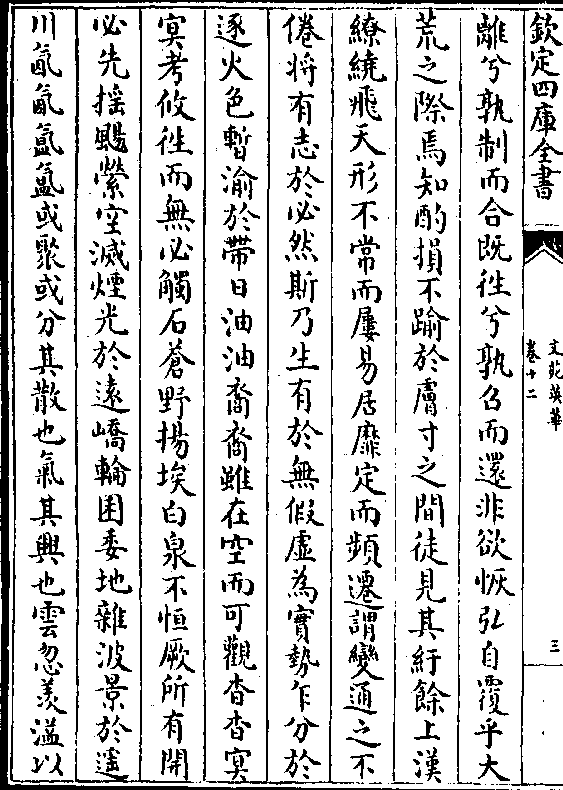 欽定四庫全書
文苑英華
卷十二
三
離兮孰制而合既徃兮孰召而還非欲恢弘自覆乎大
荒之際焉知酌損不踰於膚寸之間徒見其紆餘上漢
繚繞飛天形不常而屢易居靡定而頻遷謂變通之不
倦将有志於必然斯乃生有於無假虚為實勢乍分於
逐火色暫渝於帶日油油裔裔雖在空而可觀杳杳冥
冥考攸徃而無必觸石蒼野揚埃白泉不恒厥所有開
必先揺颺縈空滅煙光於遠嶠輪囷委地雜波景於遥
川氤氤氲氲或聚或分其散也氣其興也雲忽羡溢以